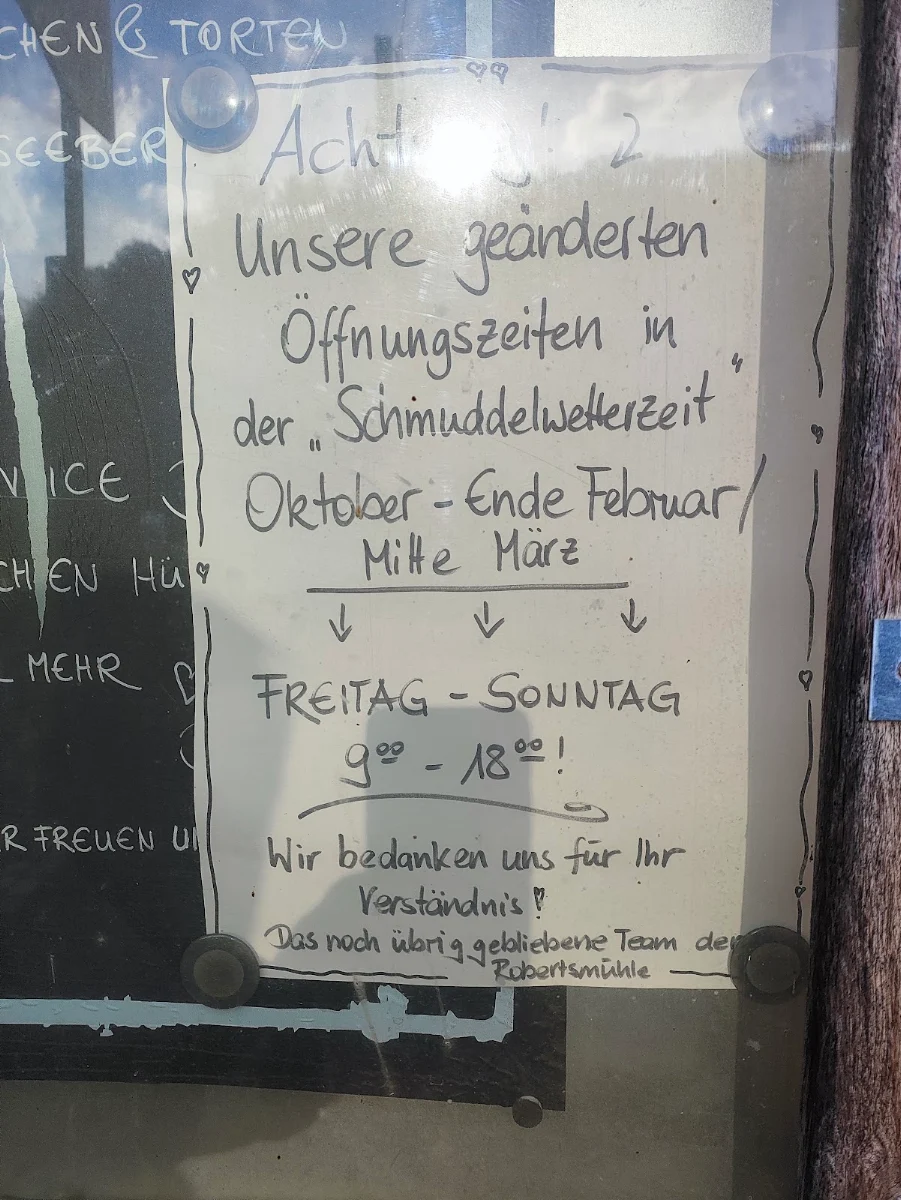 CHEN & TORTEN
SEEBER
Unsere geänderten
Öffnungszeiten in
der „Schmuddelwetterzeit“
Oktober - Ende Februar/
Mitte März
FREITAG - SONNTAG
9⁰⁰ - 18⁰⁰!
Wir bedanken uns für Ihr
Verständnis!
Das noch übrig gebliebene Team der
Robertsmühle
VICE
CHEN HÜ
MEHR
R FREUEN U